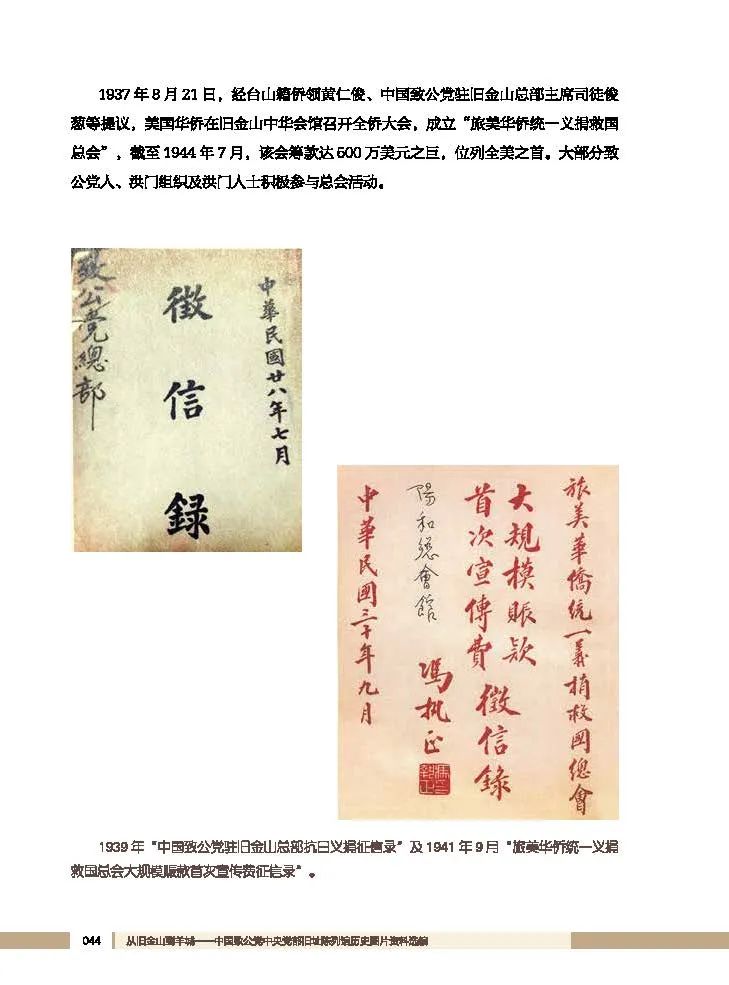 1937 年 8 月 21 日，经台山籍侨领黄仁俊、中国致公党驻旧金山总部主席司徒俊
葱等提议，美国华侨在旧金山中华会馆召开全侨大会，成立“旅美华侨统一义捐救国
总会”，截至 1944 年 7 月，该会筹款达 500 万美元之巨，位列全美之首。大部分致
公党人、洪门组织及洪门人士积极参与总会活动。
中華民國廿八年七月
徵信錄
致公党總部
旅美華僑統一義捐救國總會
大規模賑款
首次宣傳費徵信錄
陽和總會館
馮執正
中華民國三十年九月
1939 年“中国致公党驻旧金山总部抗日义捐征信录”及 1941 年 9 月“旅美华侨统一义捐
救国总会大规模赈款首次宣传费征信录”。
044 从旧金山到羊城——中国致公党中央党部旧址陈列馆历史图片资料选编